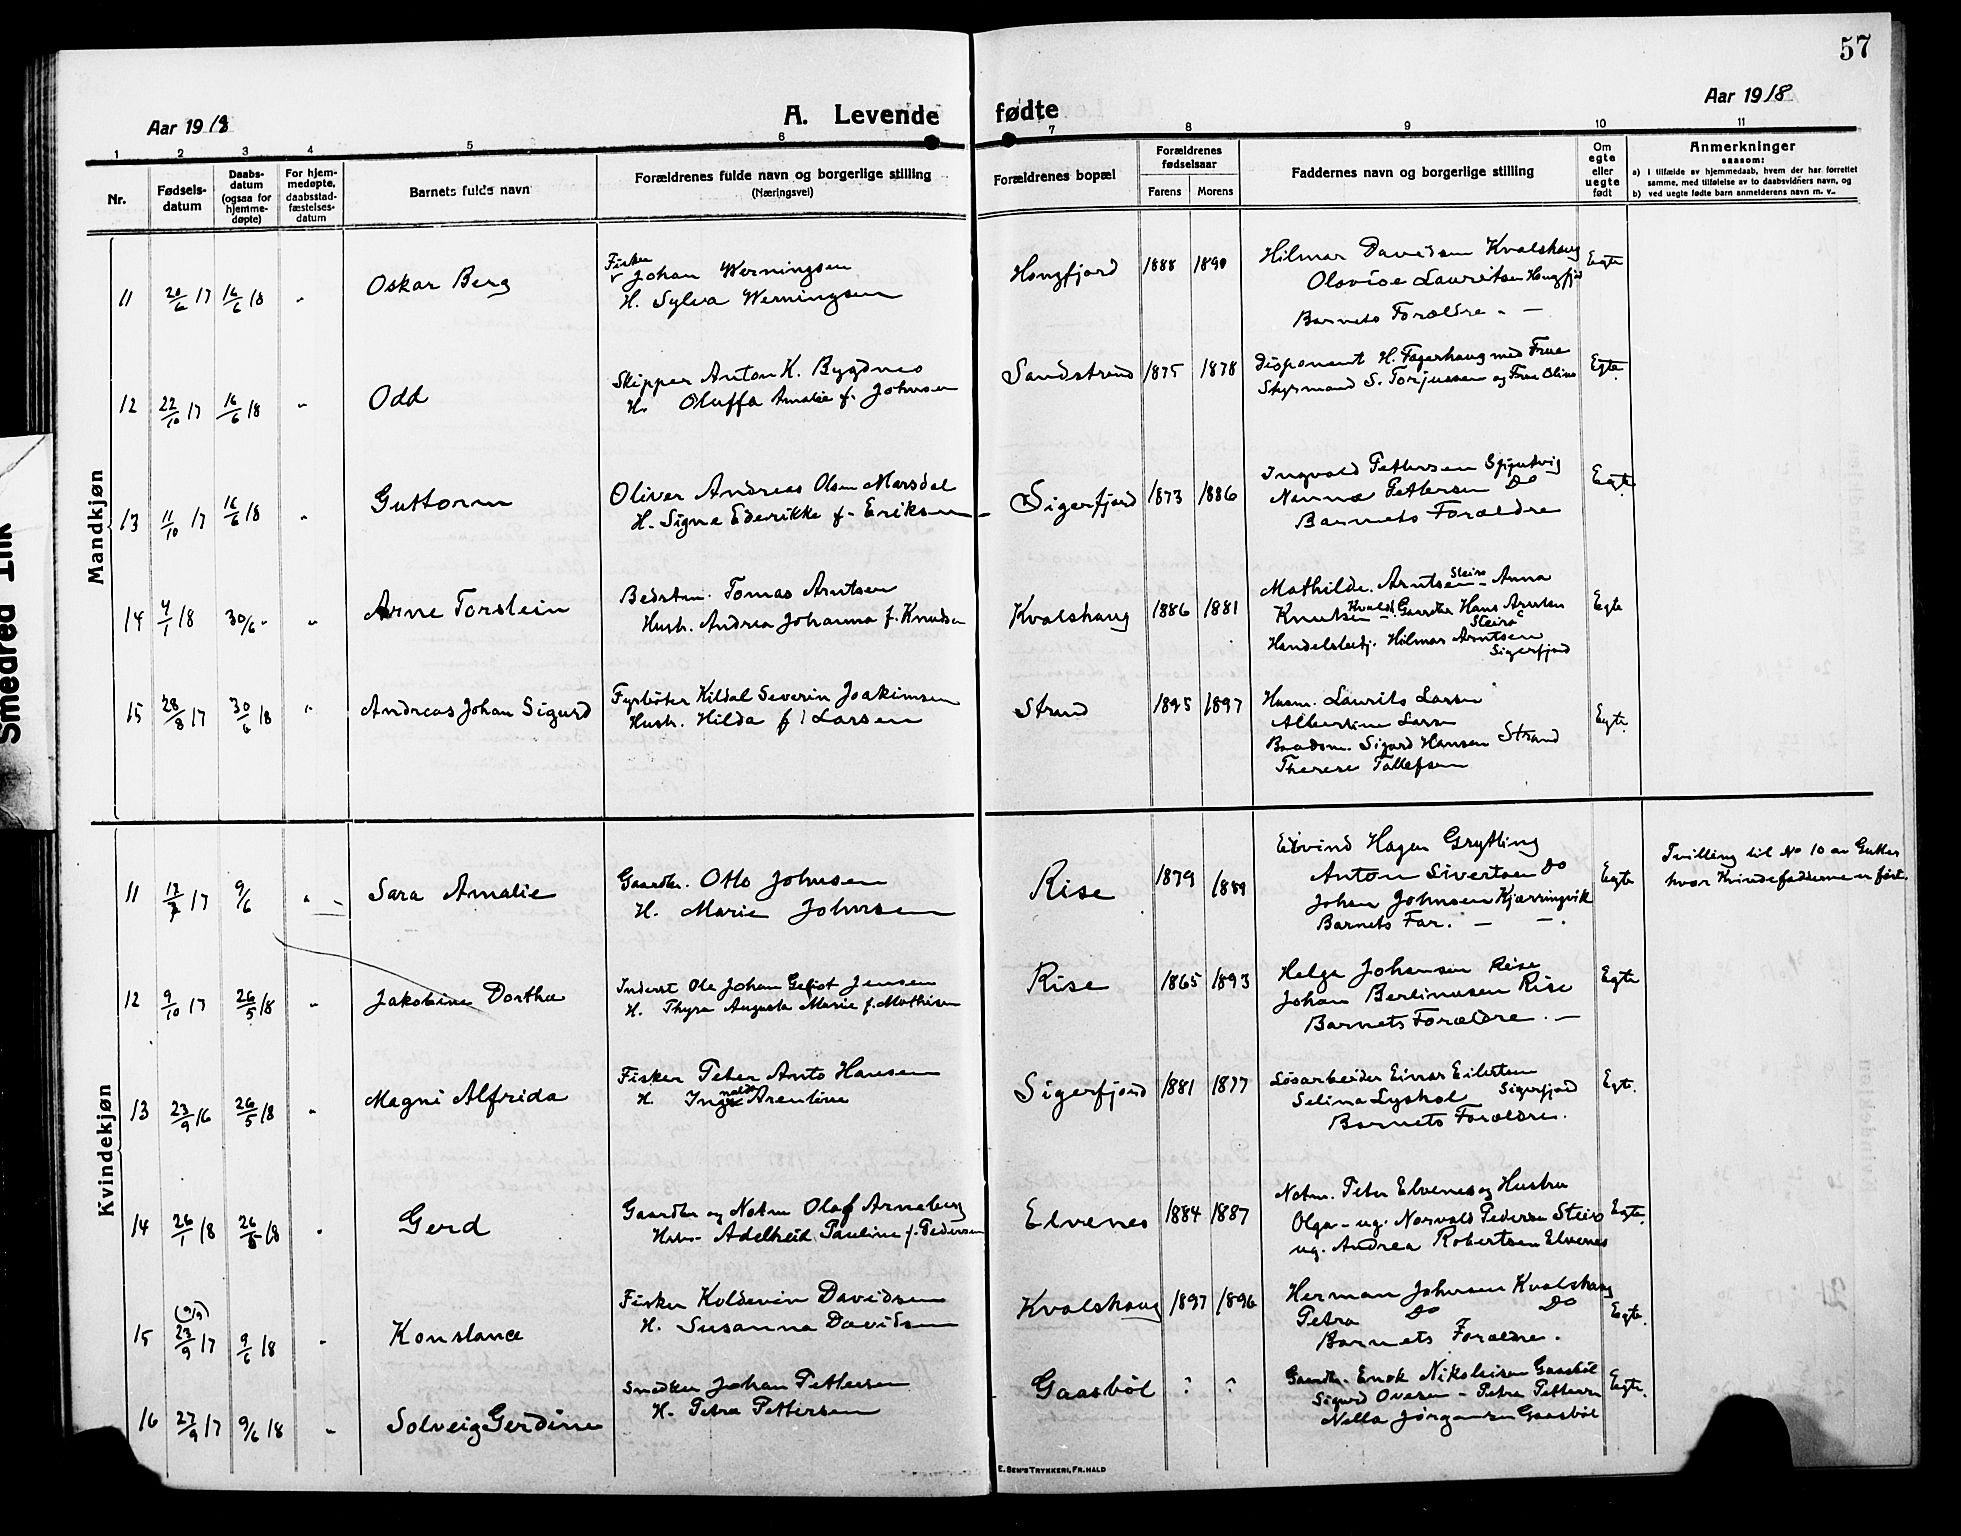 57
Aar 1918
A. Levende fødte
Aar 1918
1 2 3 4 5 6 7 8 9 10 11
Nr.
Fødsels-
datum
Daabs-
datum
(ogsaa for
hjemme-
døpte)
For hjem-
medøpte,
daabsstad-
fæstelses-
datum
Barnets fulde navn
Forældrenes fulde navn og borgerlige stilling
(Næringsvei)
Forældrenes bopæl
Forældrenes
fødselsaar
Farens Morens
Faddernes navn og borgerlige stilling
Om
egte
eller
uegte
født
Anmerkninger
saasom:
a) i tilfælde av hjemmedaab, hvem der har forrettet
samme, med tilføielse av to daabsvidners navn, og
b) ved uegte fødte barn anmelderens navn m. v.
Mandkjøn
11 20/6 17 16/6 18 " Oskar Berg
Fisker
Johan Werningsen
H. Sylva Werningsen
Hongfjord 1888 1890
Hilmar Davidsen Kvalshaug
Olovise Lauritsen Hongfjd
Barnets Forældre - —
Egte
12 22/10 17 16/6 18 " Odd
Skipper Anton K. Bygdnes
H. Oluffa Amalie f. Johnsen
Sandstrand 1875 1878
Disponent H. Fagerhaug med Frue
Styrmand S. Torjussen og Frue Oline
Egte.
13 11/10 17 16/6 18 " Guttorm
Oliver Andreas Olsen Marsdal
H. Signe Ederikke f. Eriksen
Sigerfjord 1873 1886
Ingvald Pettersen Spjutvig
Nanna Pettersen Do
Barnets Forældre
Egte.
14 4/1 18 30/6 " " Arne Torstein
Tomas Arntsen
Hustr. Andrea Johanna f. Knudsen
Kvalshaug 1886 1881
Mathilde Arntsen Steiro - Anna
Knutsen Kvalsh. Gaardbr Hans Arntsen
Steiro
Handelsbetj. Hilmar Arntsen
Sigerfjord
Egte
15 28/8 17 30/6 18 " Andreas Johan Sigurd
Fyrbøter Kildal Severin Joakimsen
Hustr. Hilda f. Larsen
Strand 1895 1897
Husm. Laurits Larsen
Albertine Larsen
Baadsm. Sigurd Hansen Strand
Therese Tollefsen
Egte.
Kvindekjøn
11 17 9/6 " Sara Amalie
Gaardbr. Otto Johnsen
H. Marie Johnsen
Rise 1879 1889
Eivind Hagen Grytting
Anton Sivertsen Do
Johan Johnsen Kjærringvik
Barnets Far. — —.
Egte
Tvilling til No 10 av Gutter
hvor Kvindefadderne er ført.
12 9/10 17 26/5 18 " Jakobine Dorthea
Inderst Ole Johan Jensen
H. Thyra Augusta Marie f. Mathisen
Rise 1865 1893
Helga Johansen Rise
Johan Berlinussen Rise
Barnets Forældre. —
Egte
13 23/9 16 26/5 18 " Magni Alfrida
Fisker Peter Anto Hansen
H. Arentine
Sigerfjord 1881 1877
Løsarbeider Einar Eilertsen
Selina Lyshol Sigerfjord
Barnets Forældre.
Egte.
14 26/1 18 26/5 18 " Gerd
Gaardbr og Notbn Olaf Arneberg
Adelheid Pauline f. Pedersen
Elvenes 1884 1887
Notm. Peter Elvenes og Hustru
Olga - ug. Norvald Pedersen Steiro
ug. Andrea Robertsen Elvenes
Egte.
15 (9/9) 23/9 17 9/6 18 " Konstance
Fisker Koldevin Davidsen
H. Susanna Davidsen
Kvalshaug 1897 1896
Herman Johnsen Kvalshaug
Petra Do Do
Barnets Forældre.
Egte.
16 27/9 17 9/6 18 " Solveig Gerdine
Snedker Johan Pettersen
H. Petra Pettersen
Gaasbøl ? ?
Gaardbr. Enok Nikolaisen Gaasbøl
Sigurd Ovesen - Petra Pettersen
Nella Jørgensen Gaasbøl
Egte.
E. SEM'S TRYKKERI, FR.HALD
Smedrød Ink